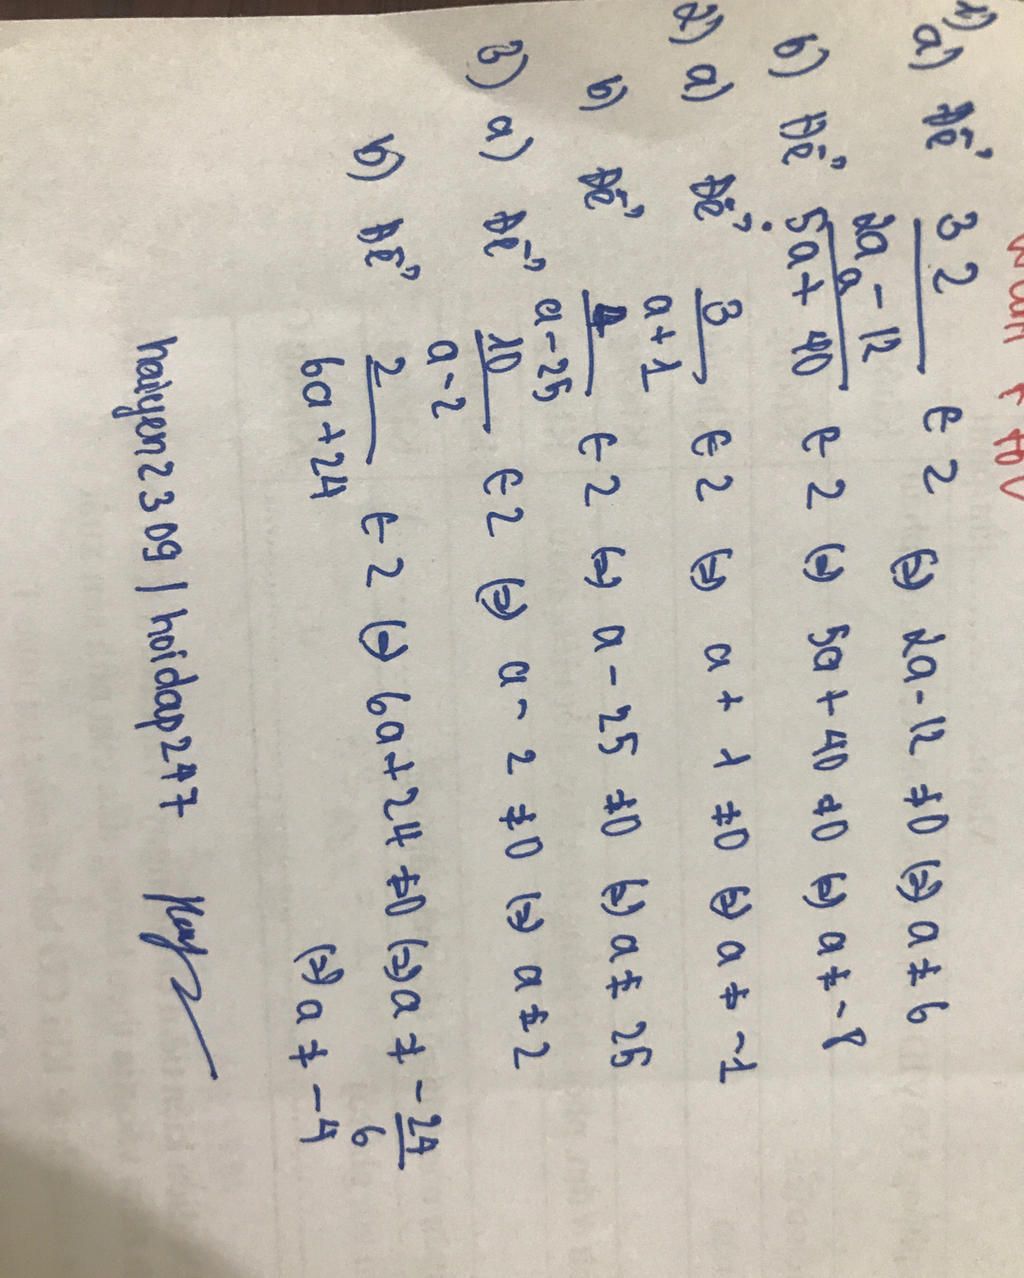 1) a) Để 32/2a-12 ∈ Z (=) 2a-12 ≠0 (=) a ≠ 6
b) Để a/5a+40 ∈ Z (=) 5a+40 ≠0 (=) a ≠ -8
2) a) Để 3/a+1 ∈ Z (=) a + 1 ≠0 (=) a ≠ -1
b) Để 4/a-25 ∈ Z (=) a - 25 ≠0 (=) a ≠ 25
3) a) Để 10/a-2 ∈ Z (=) a - 2 ≠0 (=) a ≠ 2
b) Để 2/6a+24 ∈ Z (=) 6a+24 ≠0 (=) a ≠ -24/6
(=) a ≠ -4
haiyen2309 | hoidap247